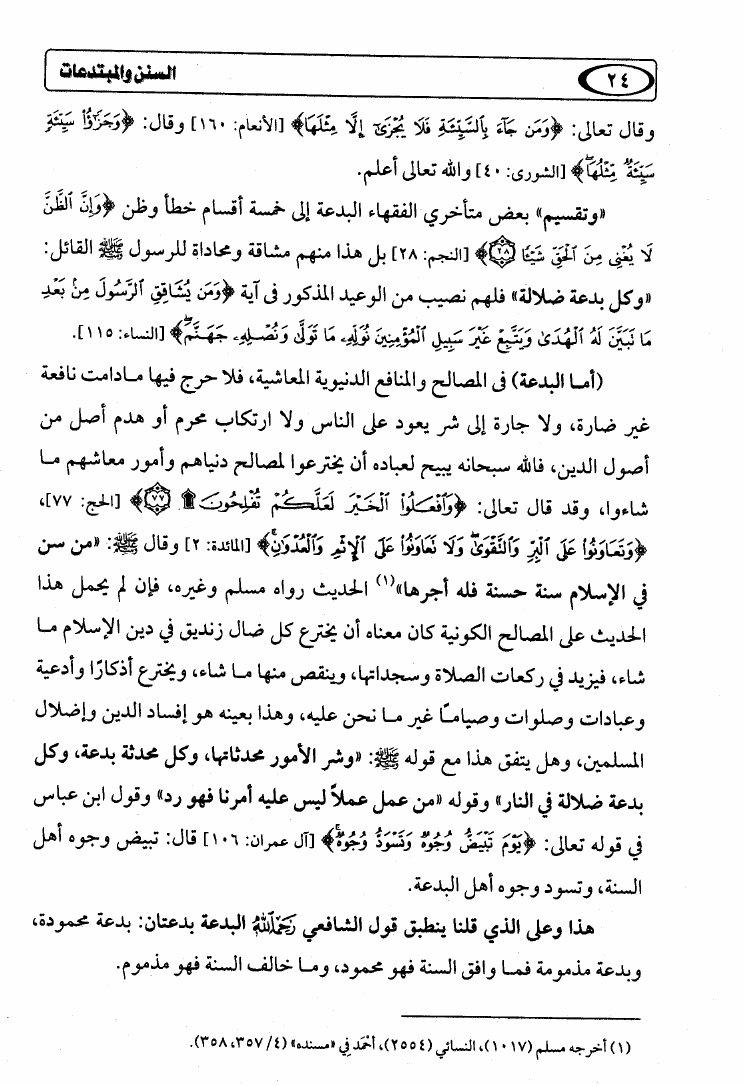 السنن والمبتدعات
٢٤
وقال تعالى: ﴿وَمَن جَآءَ بِٱلسَّيِّئَةِ فَلَا يُجْزَىٰٓ إِلَّا مِثْلَهَا﴾ [الأنعام: ١٦٠] وقال: ﴿وَجَزَٰٓؤُا۟ سَيِّئَةٍ
سَيِّئَةٌ مِّثْلُهَا﴾ [الشورى: ٤٠] والله تعالى أعلم.
«وتقسيم» بعض متأخري الفقهاء البدعة إلى خمسة أقسام خطأ وظن ﴿وَإِنَّ ٱلظَّنَّ
لَا يُغْنِى مِنَ ٱلْحَقِّ شَيْـًٔا ۝٢٨﴾ [النجم: ٢٨] بل هذا منهم مشاقة ومحاداة للرسول ﷺ القائل:
«وكل بدعة ضلالة» فلهم نصيب من الوعيد المذكور فى آية ﴿وَمَن يُشَاقِقِ ٱلرَّسُولَ مِنۢ بَعْدِ
مَا تَبَيَّنَ لَهُ ٱلْهُدَىٰ وَيَتَّبِعْ غَيْرَ سَبِيلِ ٱلْمُؤْمِنِينَ نُوَلِّهِۦ مَا تَوَلَّىٰ وَنُصْلِهِۦ جَهَنَّمَ﴾ [النساء: ١١٥].
(أما البدعة) فى المصالح والمنافع الدنيوية المعاشية، فلا حرج فيها مادامت نافعة
غير ضارة، ولا جارة إلى شر يعود على الناس ولا ارتكاب محرم أو هدم أصل من
أصول الدين، فالله سبحانه يبيح لعباده أن يخترعوا لمصالح دنياهم وأمور معاشهم ما
شاءوا، وقد قال تعالى: ﴿وَٱفْعَلُوا۟ ٱلْخَيْرَ لَعَلَّكُمْ تُفْلِحُونَ ۩ ۝٧٧﴾ [الحج: ٧٧]،
﴿وَتَعَاوَنُوا۟ عَلَى ٱلْبِرِّ وَٱلتَّقْوَىٰ وَلَا تَعَاوَنُوا۟ عَلَى ٱلْإِثْمِ وَٱلْعُدْوَٰنِ﴾ [المائدة: ٢] وقال ﷺ: «من سن
في الإسلام سنة حسنة فله أجرها»(١) الحديث رواه مسلم وغيره، فإن لم يحمل هذا
الحديث على المصالح الكونية كان معناه أن يخترع كل ضال زنديق في دين الإسلام ما
شاء، فيزيد في ركعات الصلاة وسجداتها، وينقص منها ما شاء، ويخترع أذكارًا وأدعية
وعبادات وصلوات وصيامًا غير ما نحن عليه، وهذا بعينه هو إفساد الدين وإضلال
المسلمين، وهل يتفق هذا مع قوله ﷺ: «وشر الأمور محدثاتها، وكل محدثة بدعة، وكل
بدعة ضلالة في النار» وقوله «من عمل عملاً ليس عليه أمرنا فهو رد» وقول ابن عباس
في قوله تعالى: ﴿يَوْمَ تَبْيَضُّ وُجُوهٌ وَتَسْوَدُّ وُجُوهٌ﴾ [آل عمران: ١٠٦] قال: تبيض وجوه أهل
السنة، وتسود وجوه أهل البدعة.
هذا وعلى الذي قلنا ينطبق قول الشافعي رَحِمَهُ ٱللَّهُ البدعة بدعتان: بدعة محمودة،
وبدعة مذمومة فما وافق السنة فهو محمود، وما خالف السنة فهو مذموم.
(١) أخرجه مسلم (١٠١٧)، النسائي (٢٥٥٤)، أحمد في «مسنده» (٤/ ٣٥٧، ٣٥٨).